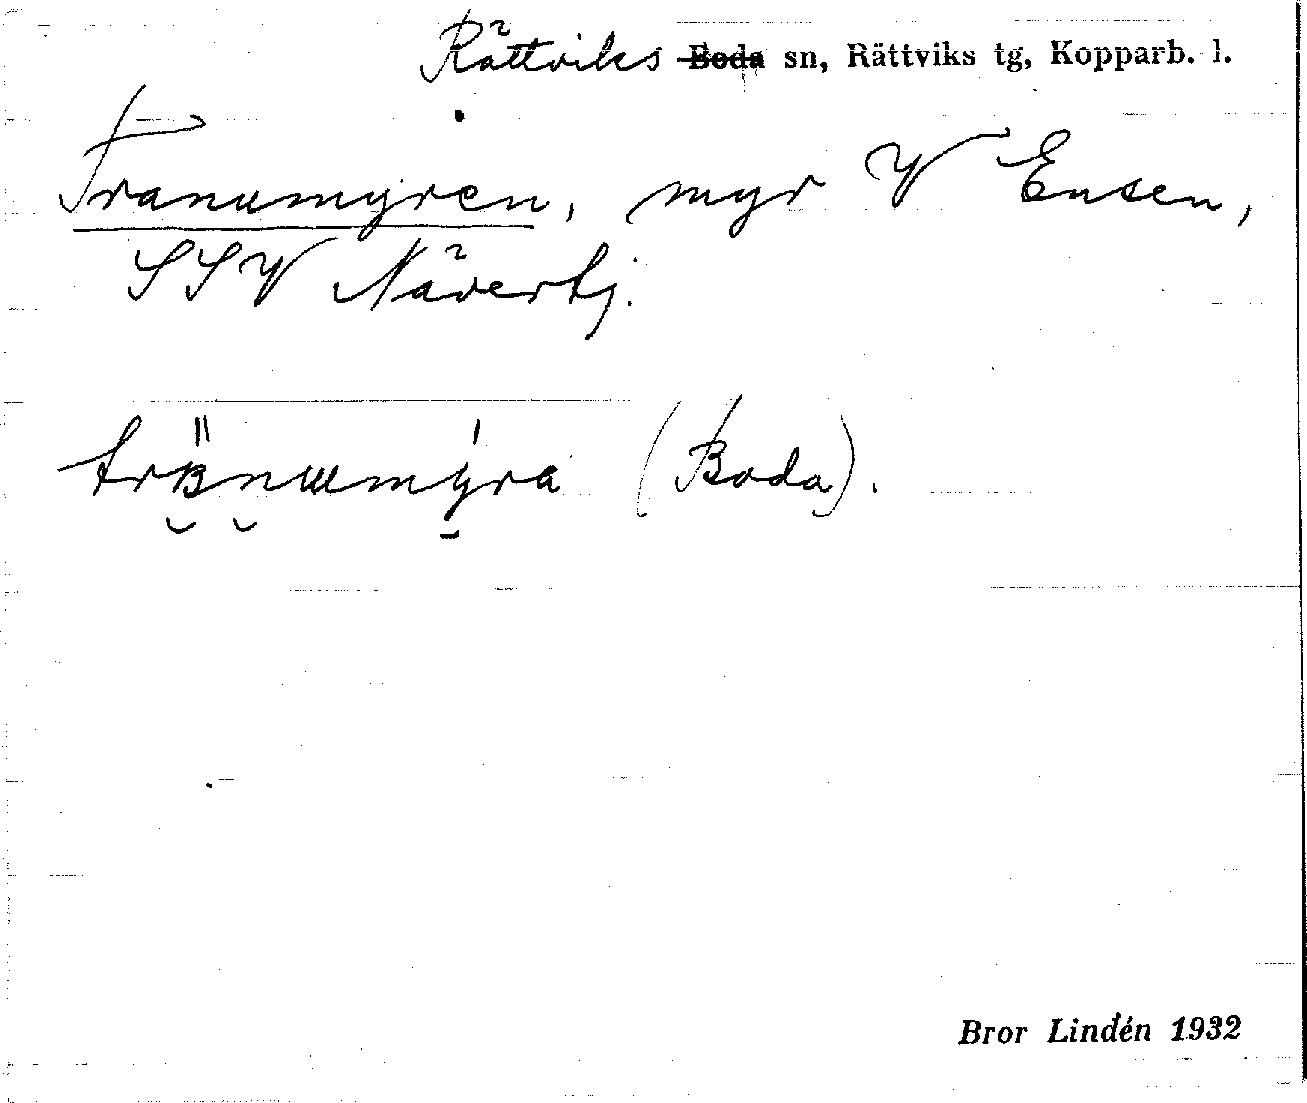 Rättviks Boda sn, Rättviks tg, Kopparb. l.
Tranumyren, myr V Ensen,
SSV Näverkj.
(Boda).
Bror Lindén 1932